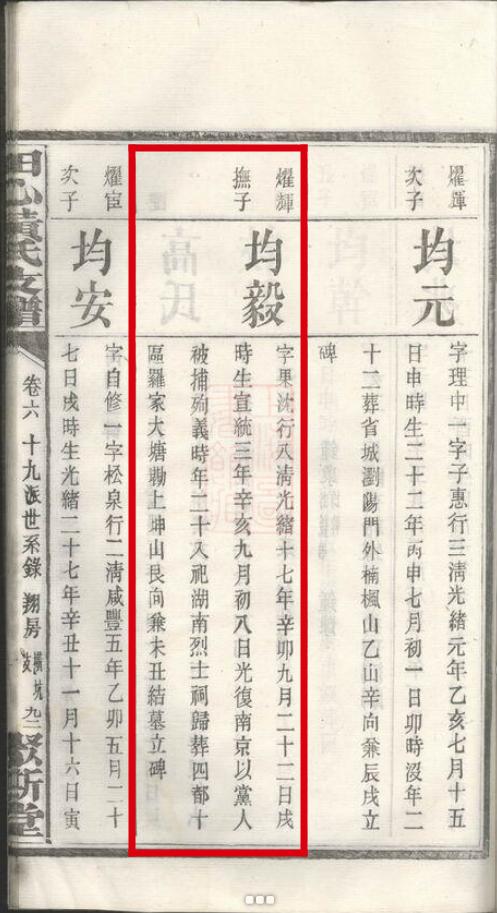 燿暉
次子
均元
字理中一字子惠行三清光緒元年乙亥七月十五
日申時生二十二年丙申七月初一日卯時沒年二
十二葬省城瀏陽門外楠楓山乙山辛向兼辰戌立
碑
燿輝
撫子
均毅
字果沈行八清光緒十七年辛卯九月二十二日戌
時生宣統三年辛亥九月初八日光復南京以黨人
被捕殉義時年二十入祀湖南烈士祠歸葬四都十
區羅家大塘勘上坤山艮向兼未丑結墓立碑
燿宦
次子
均安
字自修一字松泉行二清咸豐五年乙卯五月二十
七日戌時生光緒二十七年辛丑十一月十六日寅
田心黃氏支譜
卷六 十九派世系錄 翔房
九二
敦斯堂